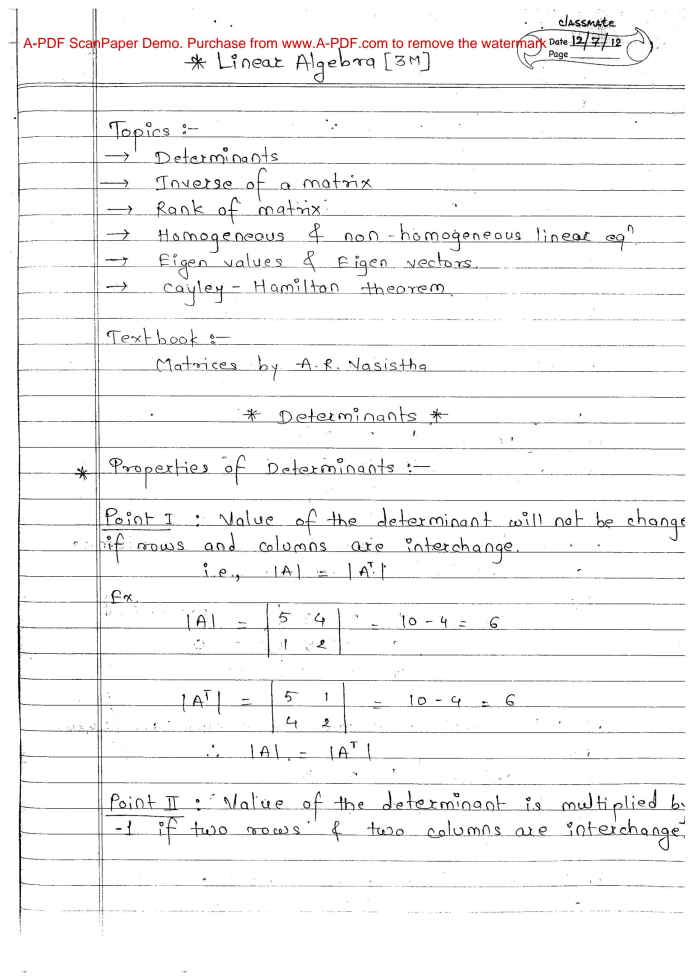 classmate
A-PDF ScanPaper Demo. Purchase from www.A-PDF.com to remove the watermark
Date 12/7/12
Page
* Linear Algebra [3M]
Topics :-
→ Determinants
→ Inverse of a matrix
→ Rank of matrix
→ Homogeneous & non-homogeneous linear eqⁿ
→ Eigen values & Eigen vectors.
→ Cayley-Hamilton theorem.
Textbook :-
Matrices by A.R. Vasistha
* Determinants *
* Properties of Determinants :-
Point I : Value of the determinant will not be change
if rows and columns are interchange.
i.e., |A| = |Aᵀ|
Ex.
|A| = | 5 4 | = 10 - 4 = 6
| 1 2 |
|Aᵀ| = | 5 1 | = 10 - 4 = 6
| 4 2 |
∴ |A| = |Aᵀ|
Point II : Value of the determinant is multiplied by
-1 if two rows & two columns are interchange.